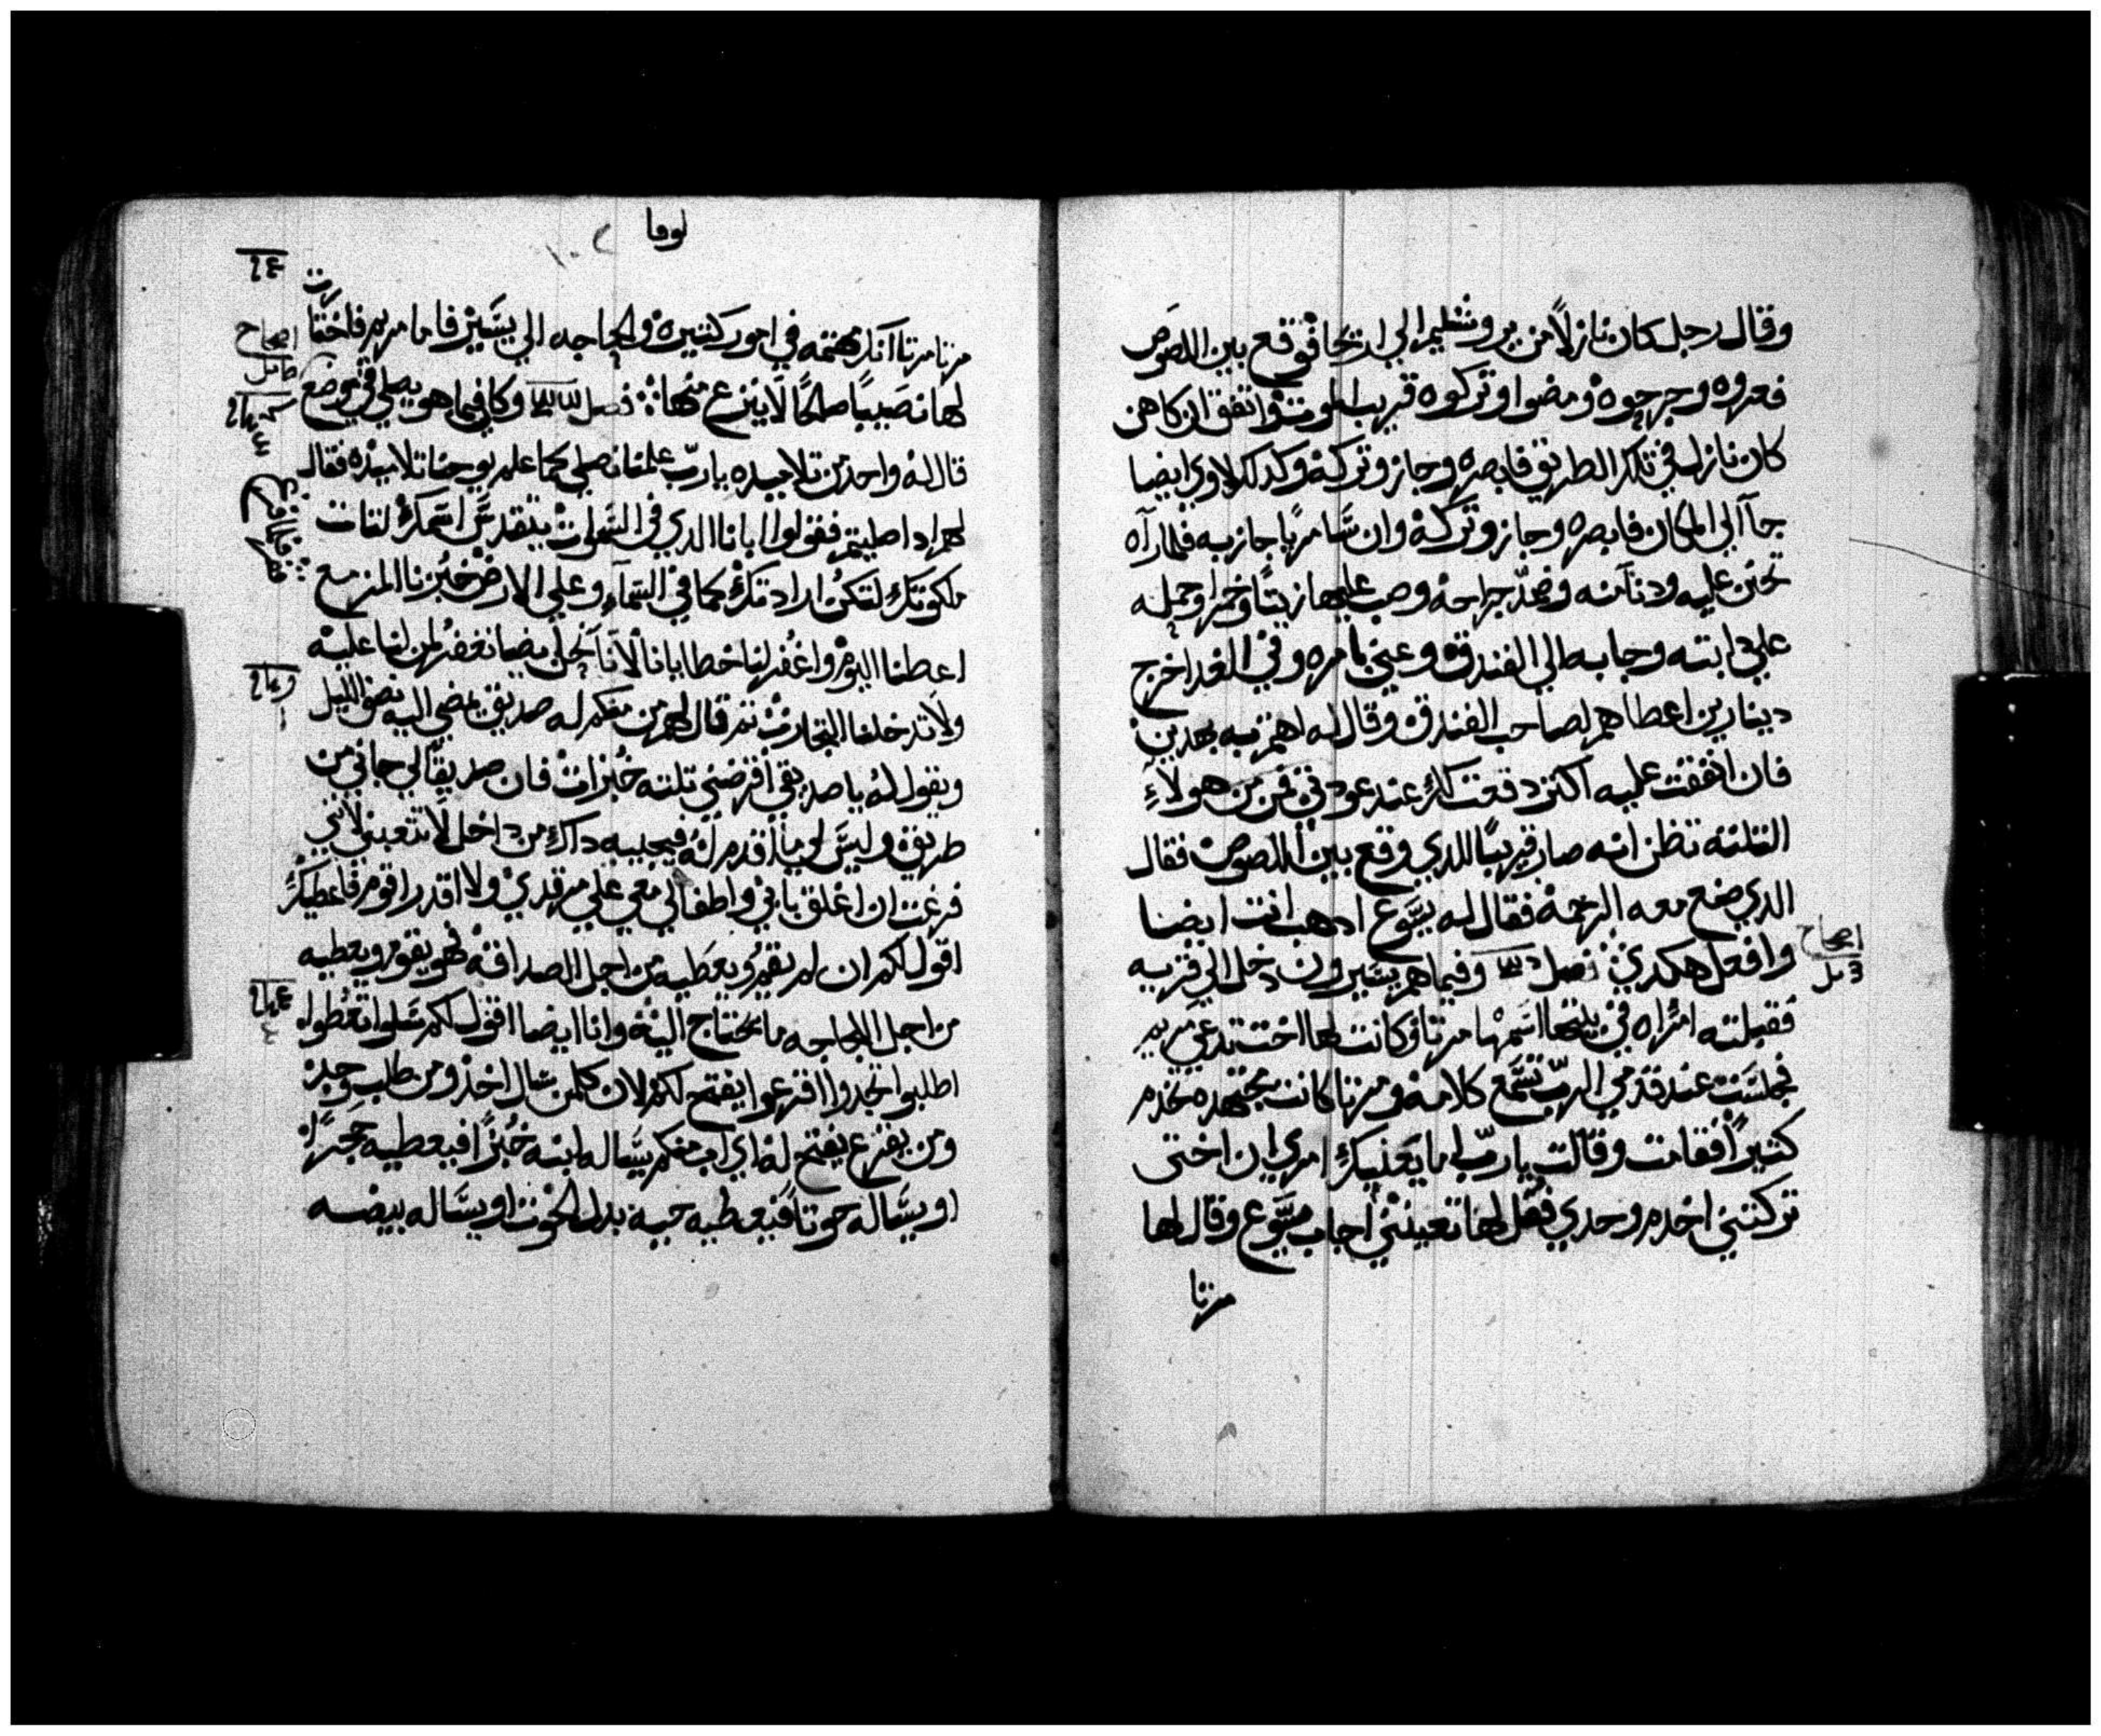 وقال رجل كان نازلاً من يروشليم الي اريحا فوقع بين اللصوص
فعروه وجرحوه ومضوا وتركوه قريب الموت واتفق ان كاهن
كان نازل في تلك الطريق فابصره وجاز وتركه وكدلك لاوي ايضا
جاآ الي المكان فابصره وجاز وتركه وان سَامريًا جاز به فلما رآه
تحنن عليه ودنا منه وضمّد جراحهُ وصب عليها زيتًا وخمرا وحمله
علي دابته وجا به الي الفندق وعني بامره وفي الغد اخرج
دينارين اعطاهم لصاحب الفندق وقال له اهتم به بهدين
فان انفقت عليه اكتر دفعت لك عند عودتي فمن من هولاءِ
التلتة تظن انه صار قريبًا للدي وقع بين اللصوص فقال
الدي صنع معه الرحمة فقال له يسَوع ادهب انت ايضا
وافعل هكدي فصل وفيما هم يسَيرون دخل الي قريه
فقبلته امراه في بيتها اسَمها مرتا وكانت لها اخت تدعي مريم
فجلسَت عند قدمي الربّ تسَمع كلامه ومرتا كانت مجتهده تخدم
كتيرًا فقامت وقالت ياربّ اما يَعنيكَ امري ان اختي
تركتني اخدم وحدي فقل لها تعينني أجاب يسَوع وقال لها
مرتا
اصحاح
لوقا
مرتا مرتا انك مهتمه في امور كتيرة والحاجه الي يسَير فاما مريم فاختارت
لها نصَيبًا صالحًا لا ينزع منها فصل وكان فيما هو يصلي في موضع
قال له واحد من تلاميده ياربّ علمنا نصلي كما علم يوحنا تلاميده فقال
لهم ادا صليتم فقولوا ابانا الدي في السَموات يتقدسَ اسَمك لتات
ملكوتك لتكن ارادتك كما في السَماءِ وعلي الارض خبزنا المزمع
اعطنا اليوم واغفر لنا خطايانا لآنا نحن ايضا نغفر لمن لنا عليه
ولا تدخلنا التجارب تم قال لهم من منكم له صديق يمضي اليه نصف الليل
ويقول له يا صديقي أقرضني تلته خبزات فان صديقًا لي جاني من
طريق وليسَ لي ما أقدم له فيجيبه داك من داخل لا تتعبني لاني
فرغت ان اغلق بابي واطفالي معي علي مرقدي ولا اقدر اقوم فاعطيك
اقول لكم ان لم يقم ويعطيه من اجل الصداقه فهو يقوم ويعطيه
من اجل اللجاجه ما يحتاج اليه وانا ايضا اقول لكم سَلوا تعطوا
اطلبوا تجدوا اقرعوا يفتح لكم لان كلمن سَال اخد ومن طلب وجد
ومن يقرع يفتح له اي اب منكم يسَاله ابنه خبزًا فيعطيه حجرًا
او يسَاله حوتًا فيعطيه حيه بدل الحوت او يسَاله بيضه
اصحاح